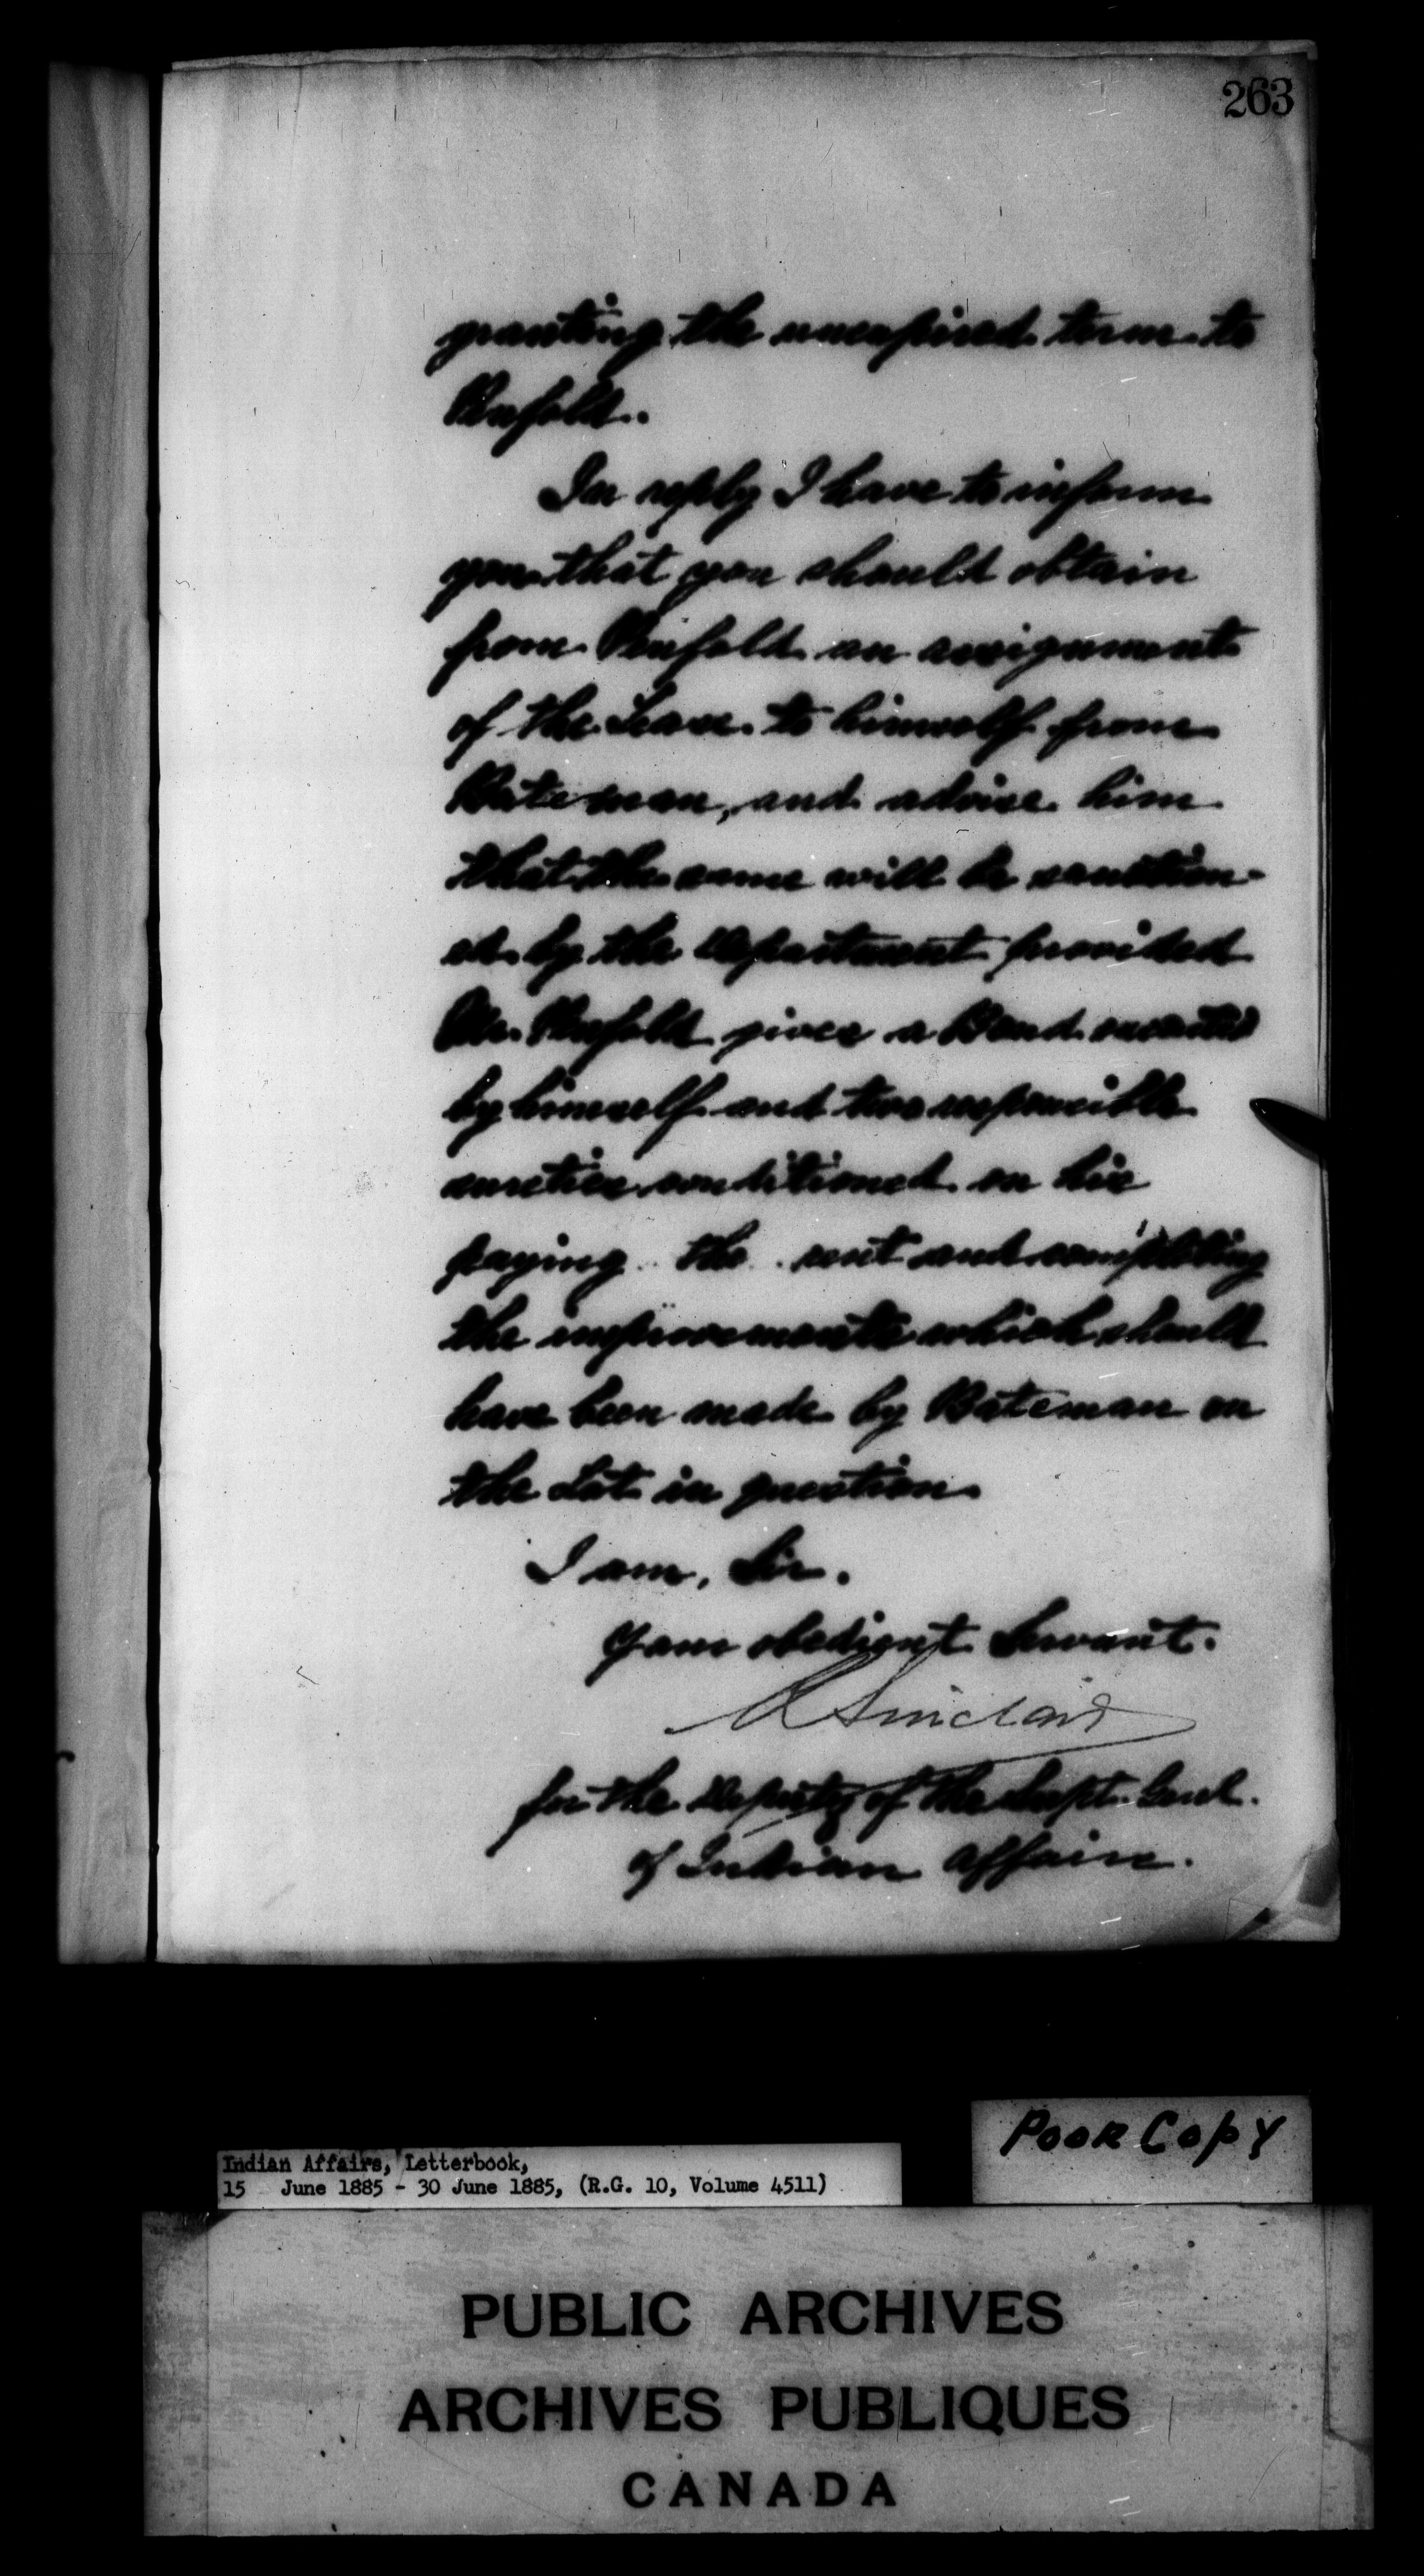 263
granting the unexpired term to
Penfold.
In reply I have to inform
you that you should obtain
from Penfold an assignment
of the Lease to himself from
Bateman, and advise him
that the same will be sanction-
ed by the Department provided
Mr. Penfold gives a Bond executed
by himself and two responsible
sureties conditioned on his
paying the rent and completing
the improvements which should
have been made by Bateman on
the Lot in question.
I am, Sir.
Your obedient Servant.
A Sinclair
for the Deputy of the Supt. Genl.
of Indian Affairs.
Poor Copy
Indian Affairs, Letterbook,
15 June 1885 - 30 June 1885, (R.G. 10, Volume 4511)
PUBLIC ARCHIVES
ARCHIVES PUBLIQUES
CANADA